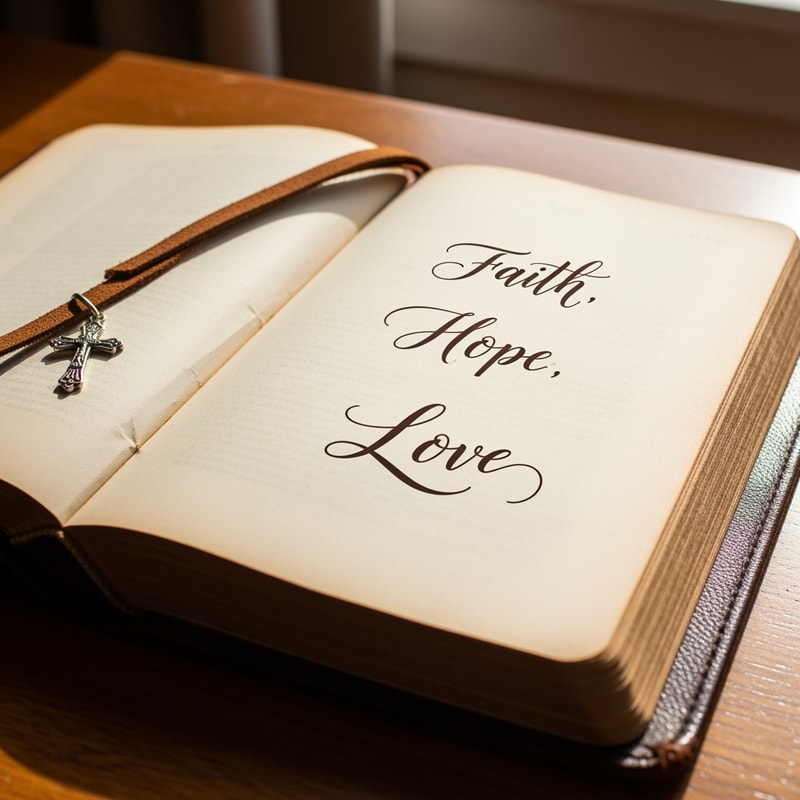 Faith,
Hope,
Love